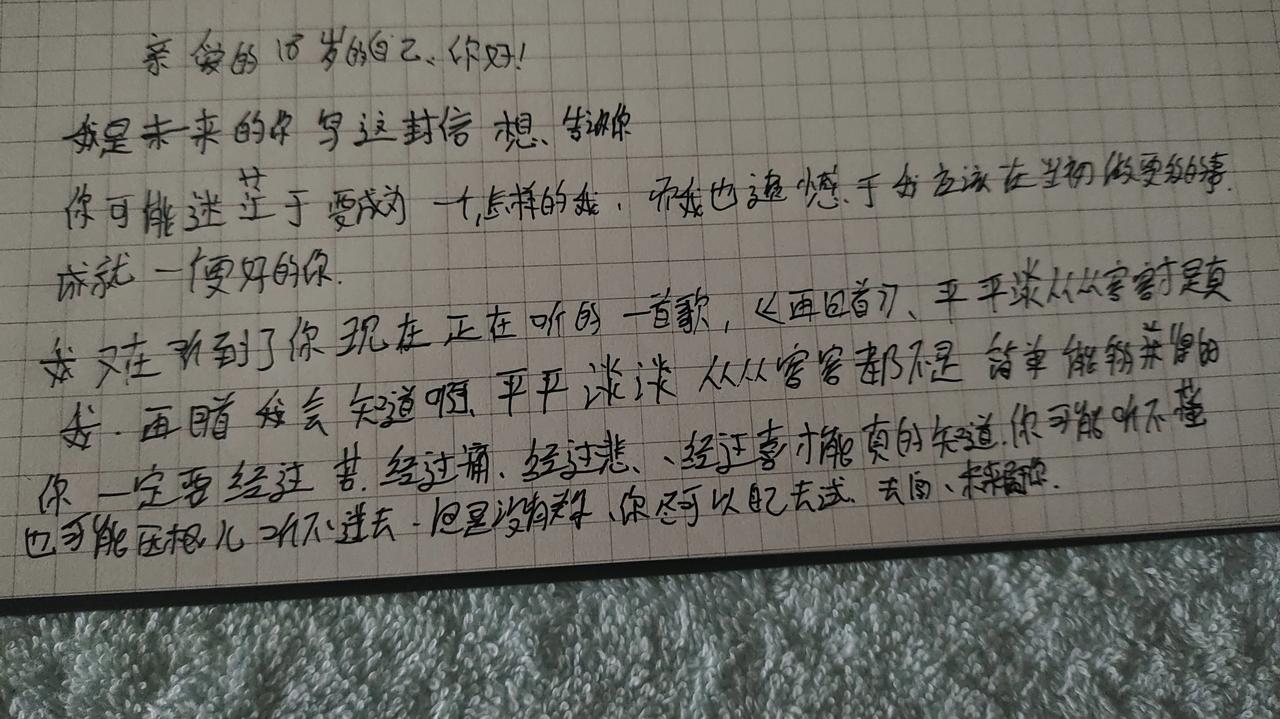 亲爱的18岁的自己、你好!
我是未来的你 写这封信 想、告诉你
你可能迷茫于要成为一个怎样的我，而我也遗憾、于我应该在当初做更多的事.
成就一个更好的你.
我又在听到了你现在正在听的一首歌，《再回首》、平平淡淡从从容容才是真
我.再回首我会知道啊、平平淡淡从从容容都不是简单能够获得的
你一定要经过苦.经过痛、经过悲、、经过喜才能真的知道.你可能听不懂
也可能压根儿听不进去.但是没有关系、你还可以自己去试.去闯、未来